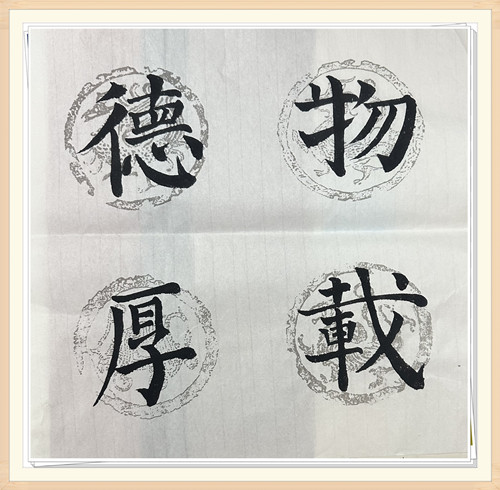 德物
厚載